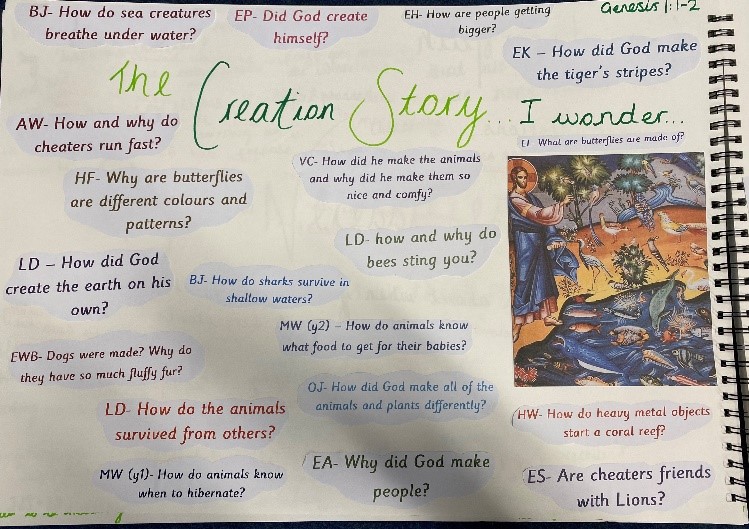 BJ- How do sea creatures
breathe under water?
EP- Did God create
himself?
EH- How are people getting
bigger?
Genesis 1:1-2
EK – How did God make
the tiger's stripes?
The Creation Story... I wonder...
AW- How and why do
cheaters run fast?
What are butterflies are made of?
VC- How did he make the animals
and why did he make them so
nice and comfy?
HF- Why are butterflies
are different colours and
patterns?
LD- how and why do
bees sting you?
LD – How did God
create the earth on his
own?
BJ- How do sharks survive in
shallow waters?
MW (y2) – How do animals know
what food to get for their babies?
EWB- Dogs were made? Why do
they have so much fluffy fur?
OJ- How did God make all of the
animals and plants differently?
LD- How do the animals
survived from others?
HW- How do heavy metal objects
start a coral reef?
MW (y1)- How do animals know
when to hibernate?
EA- Why did God make
people?
ES- Are cheaters friends
with Lions?